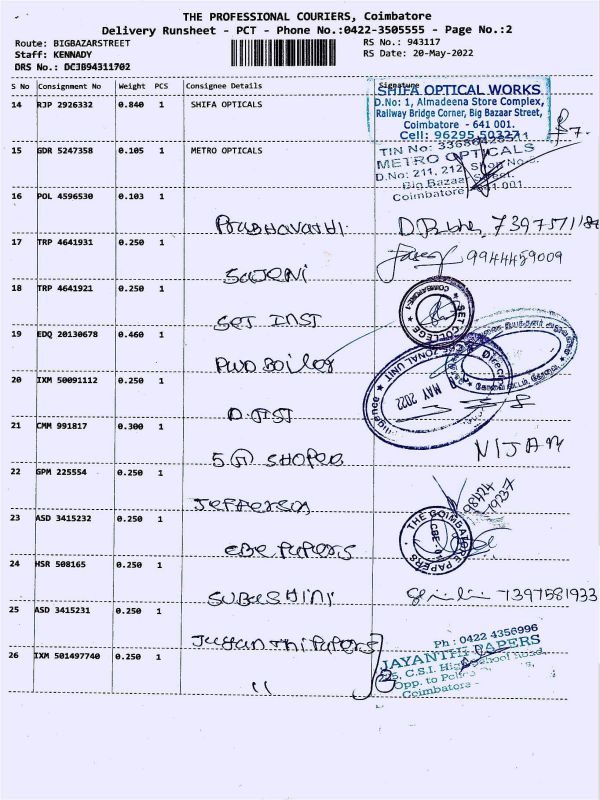 THE PROFESSIONAL COURIERS, Coimbatore
Delivery Runsheet - PCT - Phone No.:0422-3505555 - Page No.:2
Route: BIGBAZARSTREET
RS No.: 943117
Staff: KENNADY
RS Date: 20-May-2022
DRS No.: DCJB94311702
S No Consignment No Weight PCS Consignee Details Signature
SHIFA OPTICAL WORKS
14 RJP 2926332 0.840 1 SHIFA OPTICALS
D.No: 1, Almadeena Store Complex,
Railway Bridge Corner, Big Bazaar Street,
Coimbatore - 641 001.
Cell: 96295 50327
TIN No: 33680428511
15 GDR 5247358 0.105 1 METRO OPTICALS
METRO OPTICALS
D.No: 211, 212, Shop No.
Big Bazaar Street.
Coimbatore 641 001.
16 POL 4596530 0.103 1
Prabhavathi
17 TRP 4641931 0.250 1
9944459009
Sajeni
18 TRP 4641921 0.250 1
SET COLLEGE
COIMBATORE-1
SET INST
19 EDQ 20130678 0.460 1
PWD Boiler
ZONAL UNIT
20 IXM 50091112 0.250 1
MAY 2022
21 CMM 991817 0.300 1
NIJAM
22 GPM 225554 0.250 1
98424
Jefferson
23 ASD 3415232 0.250 1
THE COIMBATORE PAPERS
CBE PAPERS
24 HSR 508165 0.250 1
SUBASHINI 7397581933
25 ASD 3415231 0.250 1
Ph : 0422 4356996
JAYANTHI PAPERS
Jayanthi Papers
C.S.I. High School Road,
26 IXM 501497740 0.250 1
Opp. to
"
Coimbatore -